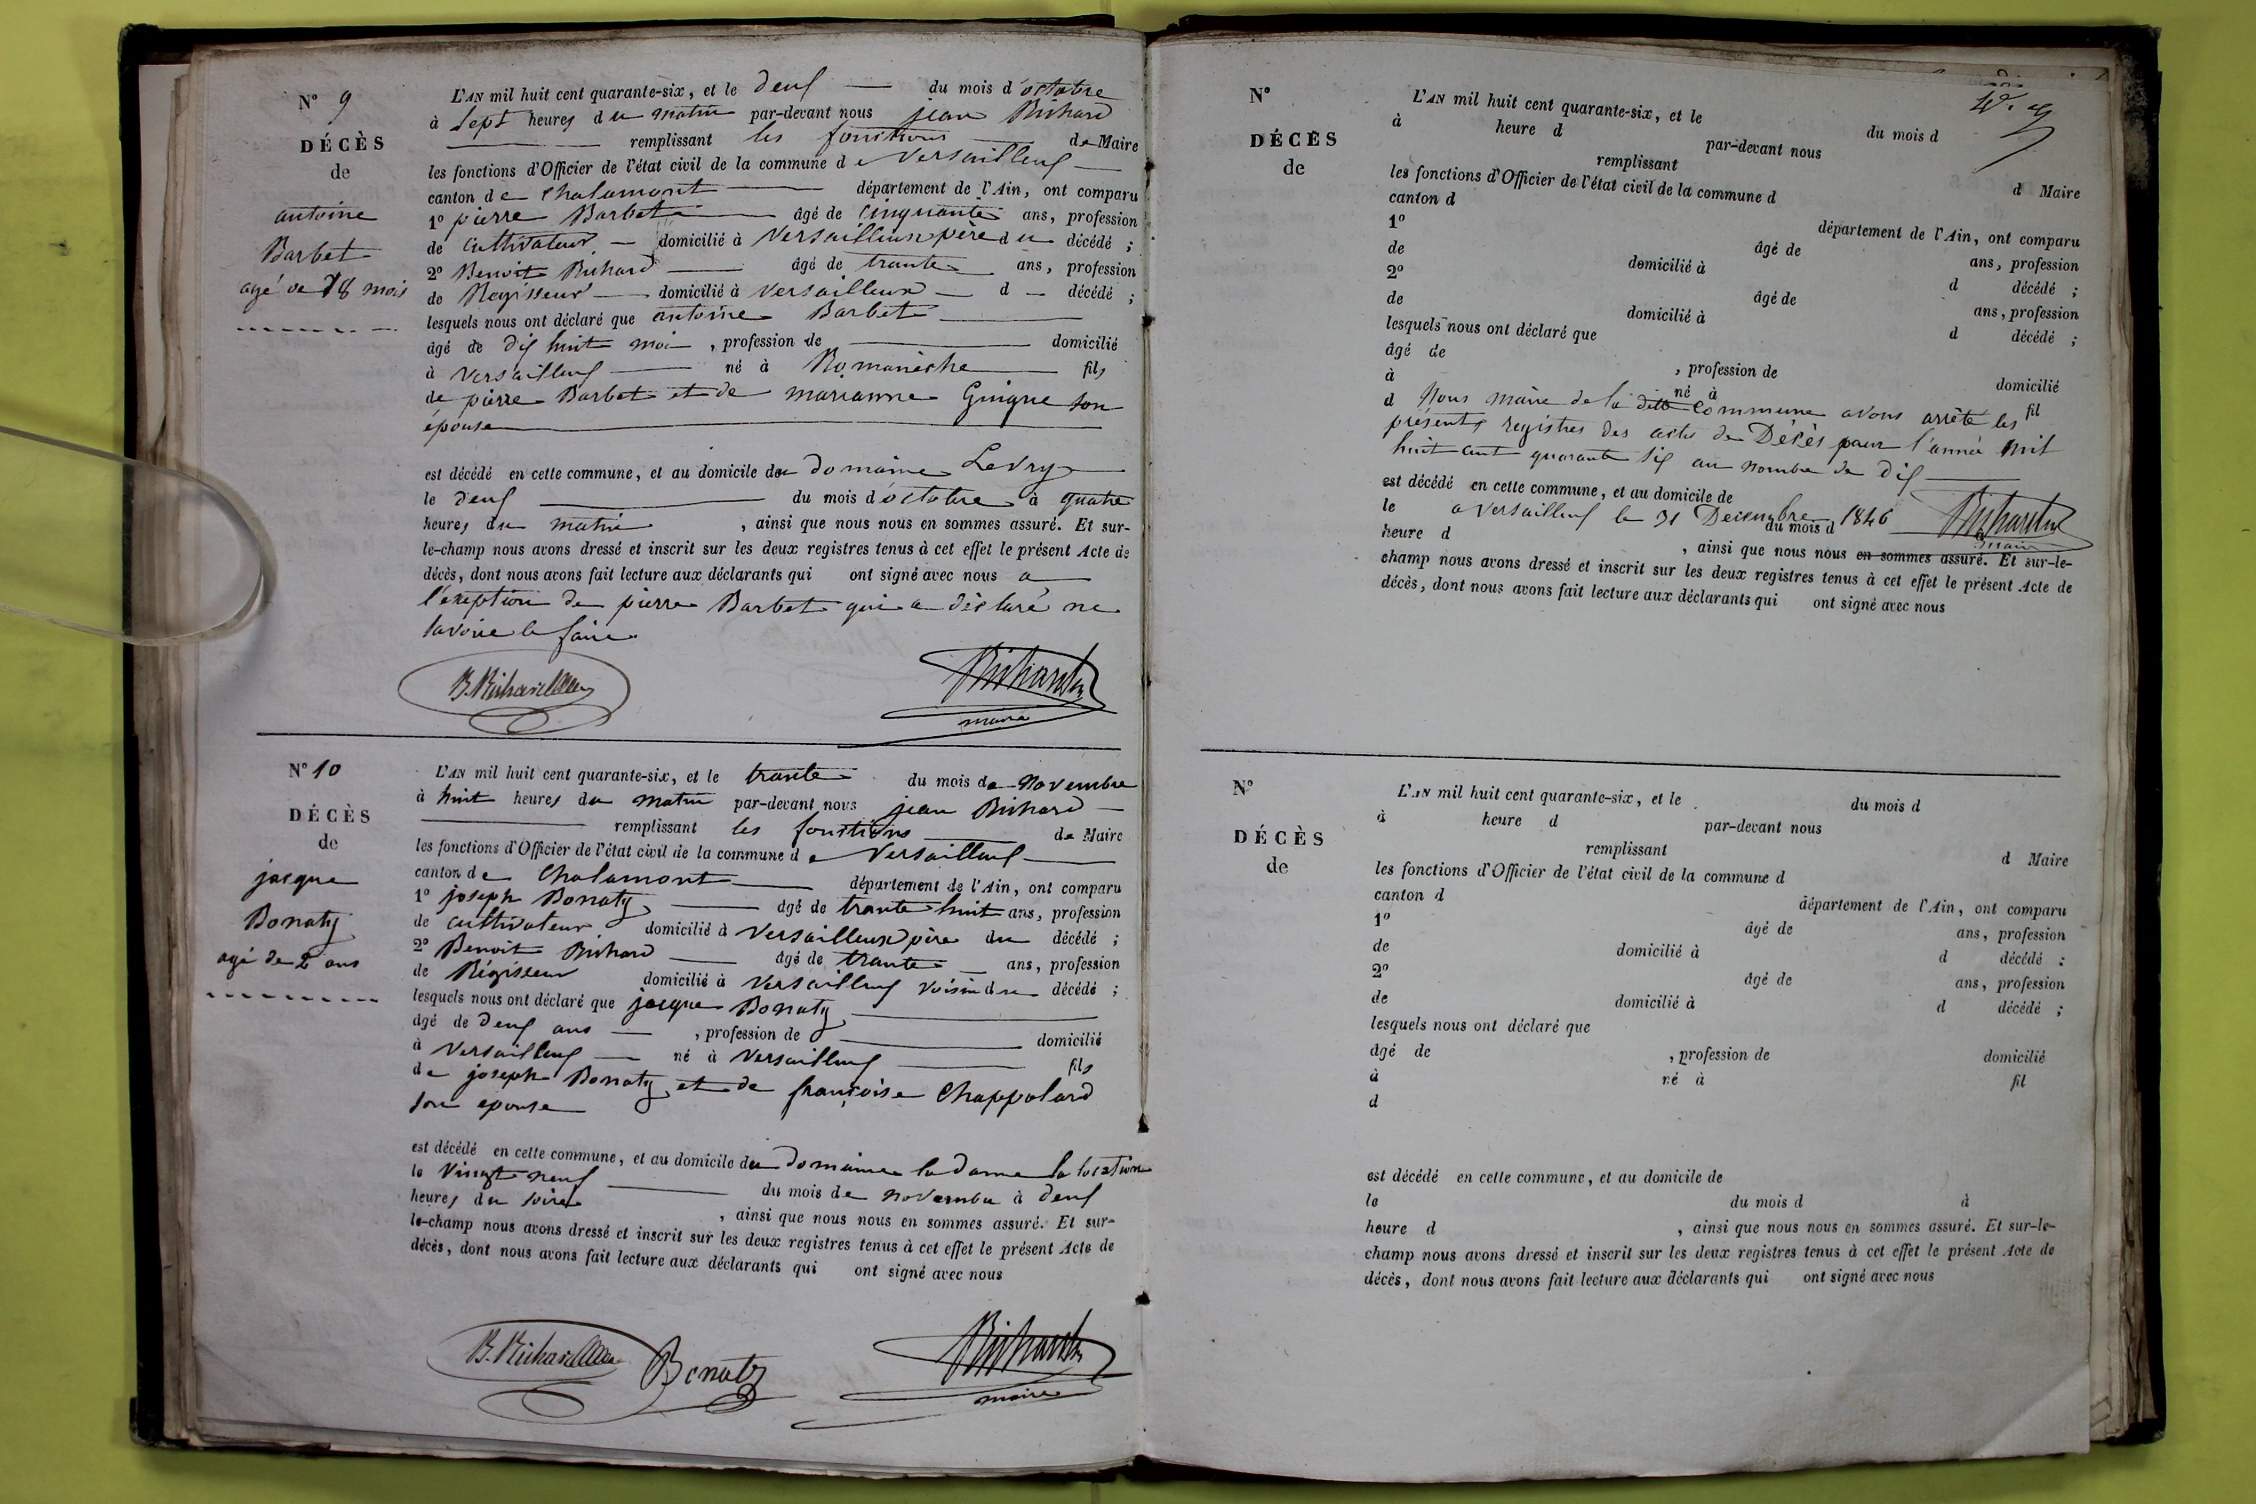 N° 9
DÉCÈS
de
antoine
Barbet
agé de 18 mois
L'AN mil huit cent quarante-six, et le deux du mois d'octobre
à sept heures du matin par-devant nous jean Richard
remplissant les fonctions de Maire
les fonctions d'Officier de l'état civil de la commune de Versailleux
canton de Chalamont département de l'Ain, ont comparu
1° pierre Barbet âgé de cinquante ans, profession
de cultivateur domicilié à Versailleux père du décédé ;
2° Benoit Richard âgé de trante ans, profession
de Régisseur domicilié à Versailleux d décédé ;
lesquels nous ont déclaré que antoine Barbet
âgé de dix huit moi , profession de domicilié
à Versailleux né à Romanèche fils
de pierre Barbet et de marianne Guigue son
épouse
est décédé en cette commune, et au domicile du domaine Levry
le deux du mois d'octobre à quatre
heures du matin , ainsi que nous nous en sommes assuré. Et sur-
le-champ nous avons dressé et inscrit sur les deux registres tenus à cet effet le présent Acte de
décès, dont nous avons fait lecture aux déclarants qui ont signé avec nous a
l'exeption de pierre Barbet qui a déclaré ne
savoir le faire
B. Richard
Richard
maire
N° 10
DÉCÈS
de
jacque
Bonaty
agé de 2 ans
L'AN mil huit cent quarante-six, et le trante du mois de novembre
à huit heures du matin par-devant nous jean Richard
remplissant les fonctions de Maire
les fonctions d'Officier de l'état civil de la commune de Versailleux
canton de Chalamont département de l'Ain, ont comparu
1° joseph Bonaty âgé de trante huit ans, profession
de cultivateur domicilié à Versailleux père du décédé ;
2° Benoit Richard âgé de trante ans, profession
de Régisseur domicilié à Versailleux voisin du décédé ;
lesquels nous ont déclaré que jacque Bonaty
âgé de deux ans , profession de domicilié
à Versailleux né à Versailleux fils
de joseph Bonaty et de françoise Chappolard
son epouse
est décédé en cette commune, et au domicile du domaine la dame la location
le vingt neuf du mois de novembre à deux
heures du soire , ainsi que nous nous en sommes assuré. Et sur-
le-champ nous avons dressé et inscrit sur les deux registres tenus à cet effet le présent Acte de
décès, dont nous avons fait lecture aux déclarants qui ont signé avec nous
B. Richard
Bonaty
Richard
maire
N°
DÉCÈS
de
L'AN mil huit cent quarante-six, et le du mois d
à heure d par-devant nous
remplissant d Maire
les fonctions d'Officier de l'état civil de la commune d
canton d département de l'Ain, ont comparu
1° âgé de ans, profession
de domicilié à d décédé ;
2° âgé de ans, profession
de domicilié à d décédé ;
lesquels nous ont déclaré que
âgé de , profession de domicilié
à né à fil
d Nous maire de la ditte commune avons arrêté les
présents registres des actes de Décès pour l'année mil
huit cent quarante six au nombre de dix
est décédé en cette commune, et au domicile de
le du mois d
a Versailleux le 31 Decembre 1846 Richard
maire
heure d , ainsi que nous nous en sommes assuré. Et sur-le-
champ nous avons dressé et inscrit sur les deux registres tenus à cet effet le présent Acte de
décès, dont nous avons fait lecture aux déclarants qui ont signé avec nous
N°
DÉCÈS
de
L'AN mil huit cent quarante-six, et le du mois d
à heure d par-devant nous
remplissant d Maire
les fonctions d'Officier de l'état civil de la commune d
canton d département de l'Ain, ont comparu
1° âgé de ans, profession
de domicilié à d décédé ;
2° âgé de ans, profession
de domicilié à d décédé ;
lesquels nous ont déclaré que
âgé de , profession de domicilié
à né à fil
d
est décédé en cette commune, et au domicile de
le du mois d à
heure d , ainsi que nous nous en sommes assuré. Et sur-le-
champ nous avons dressé et inscrit sur les deux registres tenus à cet effet le présent Acte de
décès, dont nous avons fait lecture aux déclarants qui ont signé avec nous